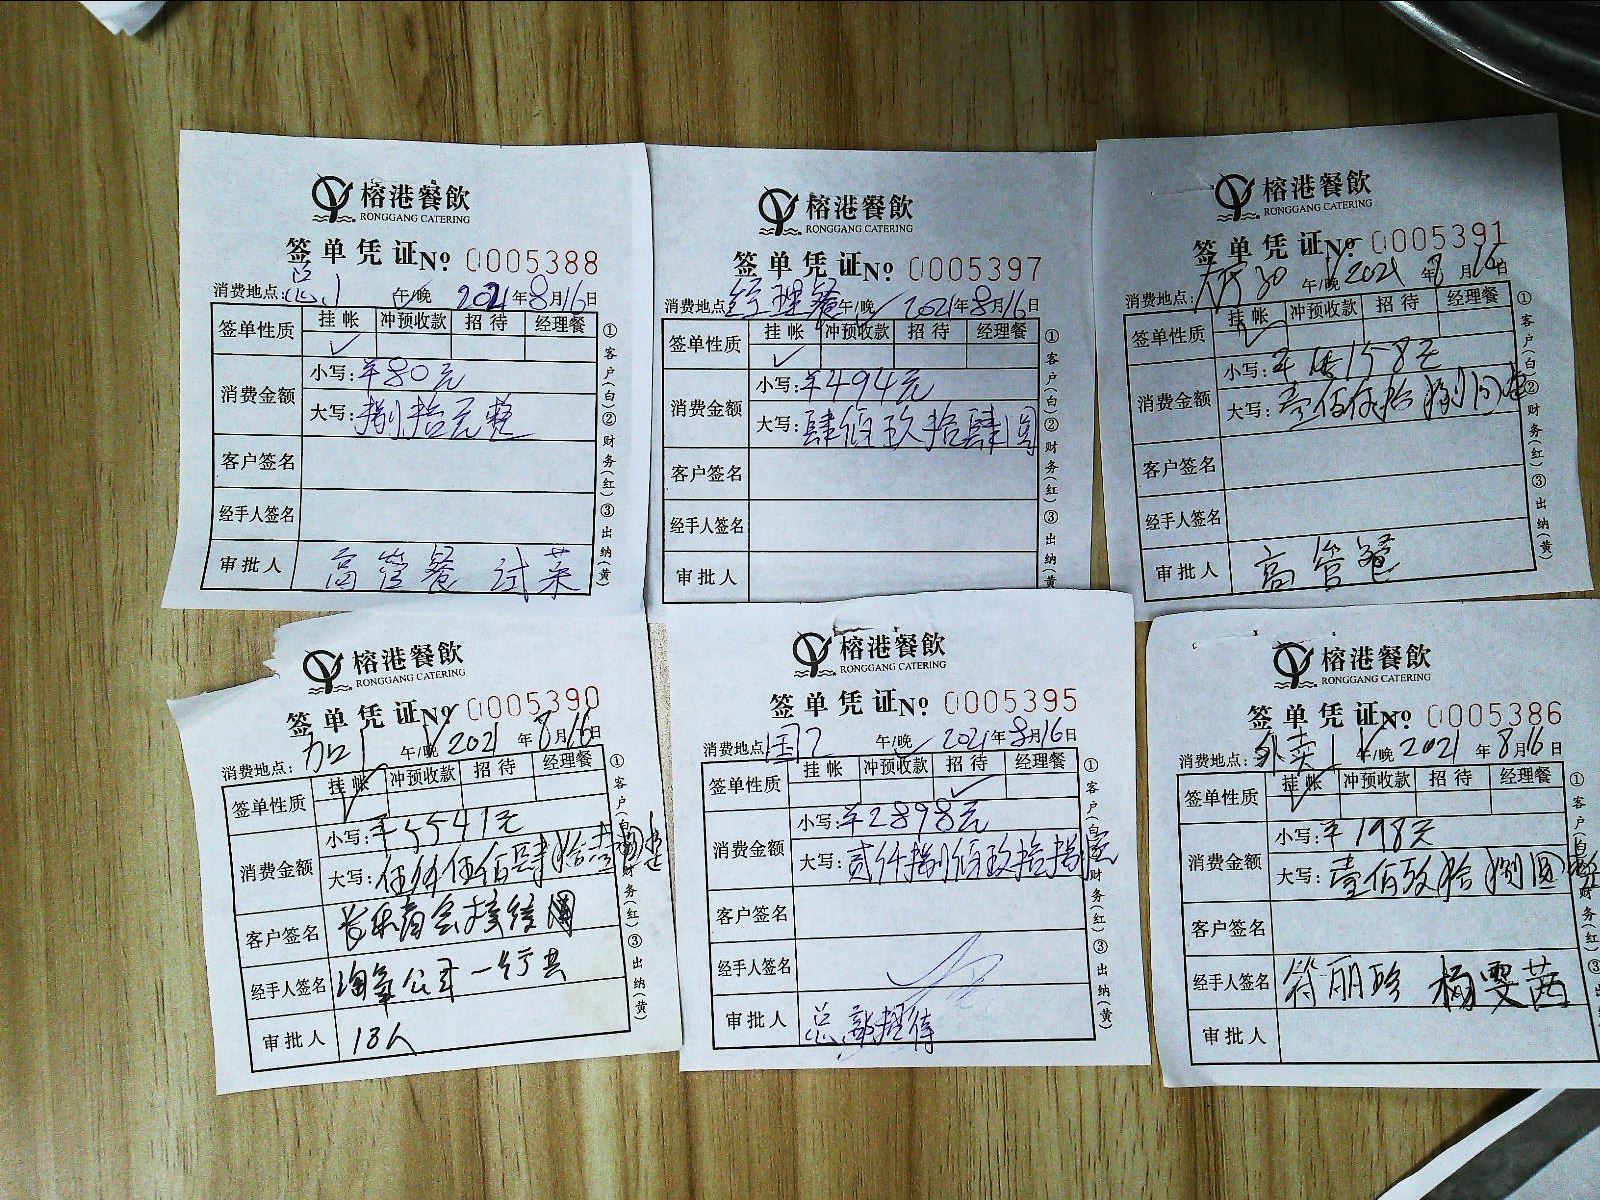 榕港餐飲
RONGGANG CATERING
签单凭证№ 0005388
消费地点: 总1 午/晚 2021年8月16日
签单性质 挂帐 冲预收款 招待 经理餐
✓
消费金额 小写: ¥80元
大写: 捌拾元整
客户签名
经手人签名
审批人 高管餐 试菜
①客户(白)②财务(红)③出纳(黄)
榕港餐飲
RONGGANG CATERING
签单凭证№ 0005397
消费地点: 经理餐 午/晚 2021年8月16日
签单性质 挂帐 冲预收款 招待 经理餐
✓
消费金额 小写: ¥494元
大写: 肆佰玖拾肆圆
客户签名
经手人签名
审批人
①客户(白)②财务(红)③出纳(黄
榕港餐飲
RONGGANG CATERING
签单凭证№ 0005391
消费地点: 午/晚 2021年8月16日
签单性质 挂帐 冲预收款 招待 经理餐
✓
消费金额 小写: ¥158元
大写: 壹佰伍拾捌圆整
客户签名
经手人签名
审批人 高管餐
①客户(白)②财务(红)③出纳(黄)
榕港餐飲
RONGGANG CATERING
签单凭证№ 0005390
消费地点: 午/晚 2021年8月16日
签单性质 挂帐 冲预收款 招待 经理餐
✓
消费金额 小写: ¥5541元
大写: 伍仟伍佰肆拾壹圆整
客户签名 长乐商会接待
经手人签名 公司一行共
审批人 13人
①客户(白)②财务(红)③出纳(黄)
榕港餐飲
RONGGANG CATERING
签单凭证№ 0005395
消费地点: 国7 午/晚 2021年8月16日
签单性质 挂帐 冲预收款 招待 经理餐
✓
消费金额 小写: ¥2898元
大写: 贰仟捌佰玖拾捌
客户签名
经手人签名
审批人 总 招待
①客户(白)②财务(红)③出纳(黄)
榕港餐飲
RONGGANG CATERING
签单凭证№ 0005386
消费地点: 外卖1 午/晚 2021年8月16日
签单性质 挂帐 冲预收款 招待 经理餐
✓
消费金额 小写: ¥198元
大写: 壹佰玖拾捌圆整
客户签名
经手人签名 符丽珍 杨雯茜
审批人
①客户(白)②财务(红)③